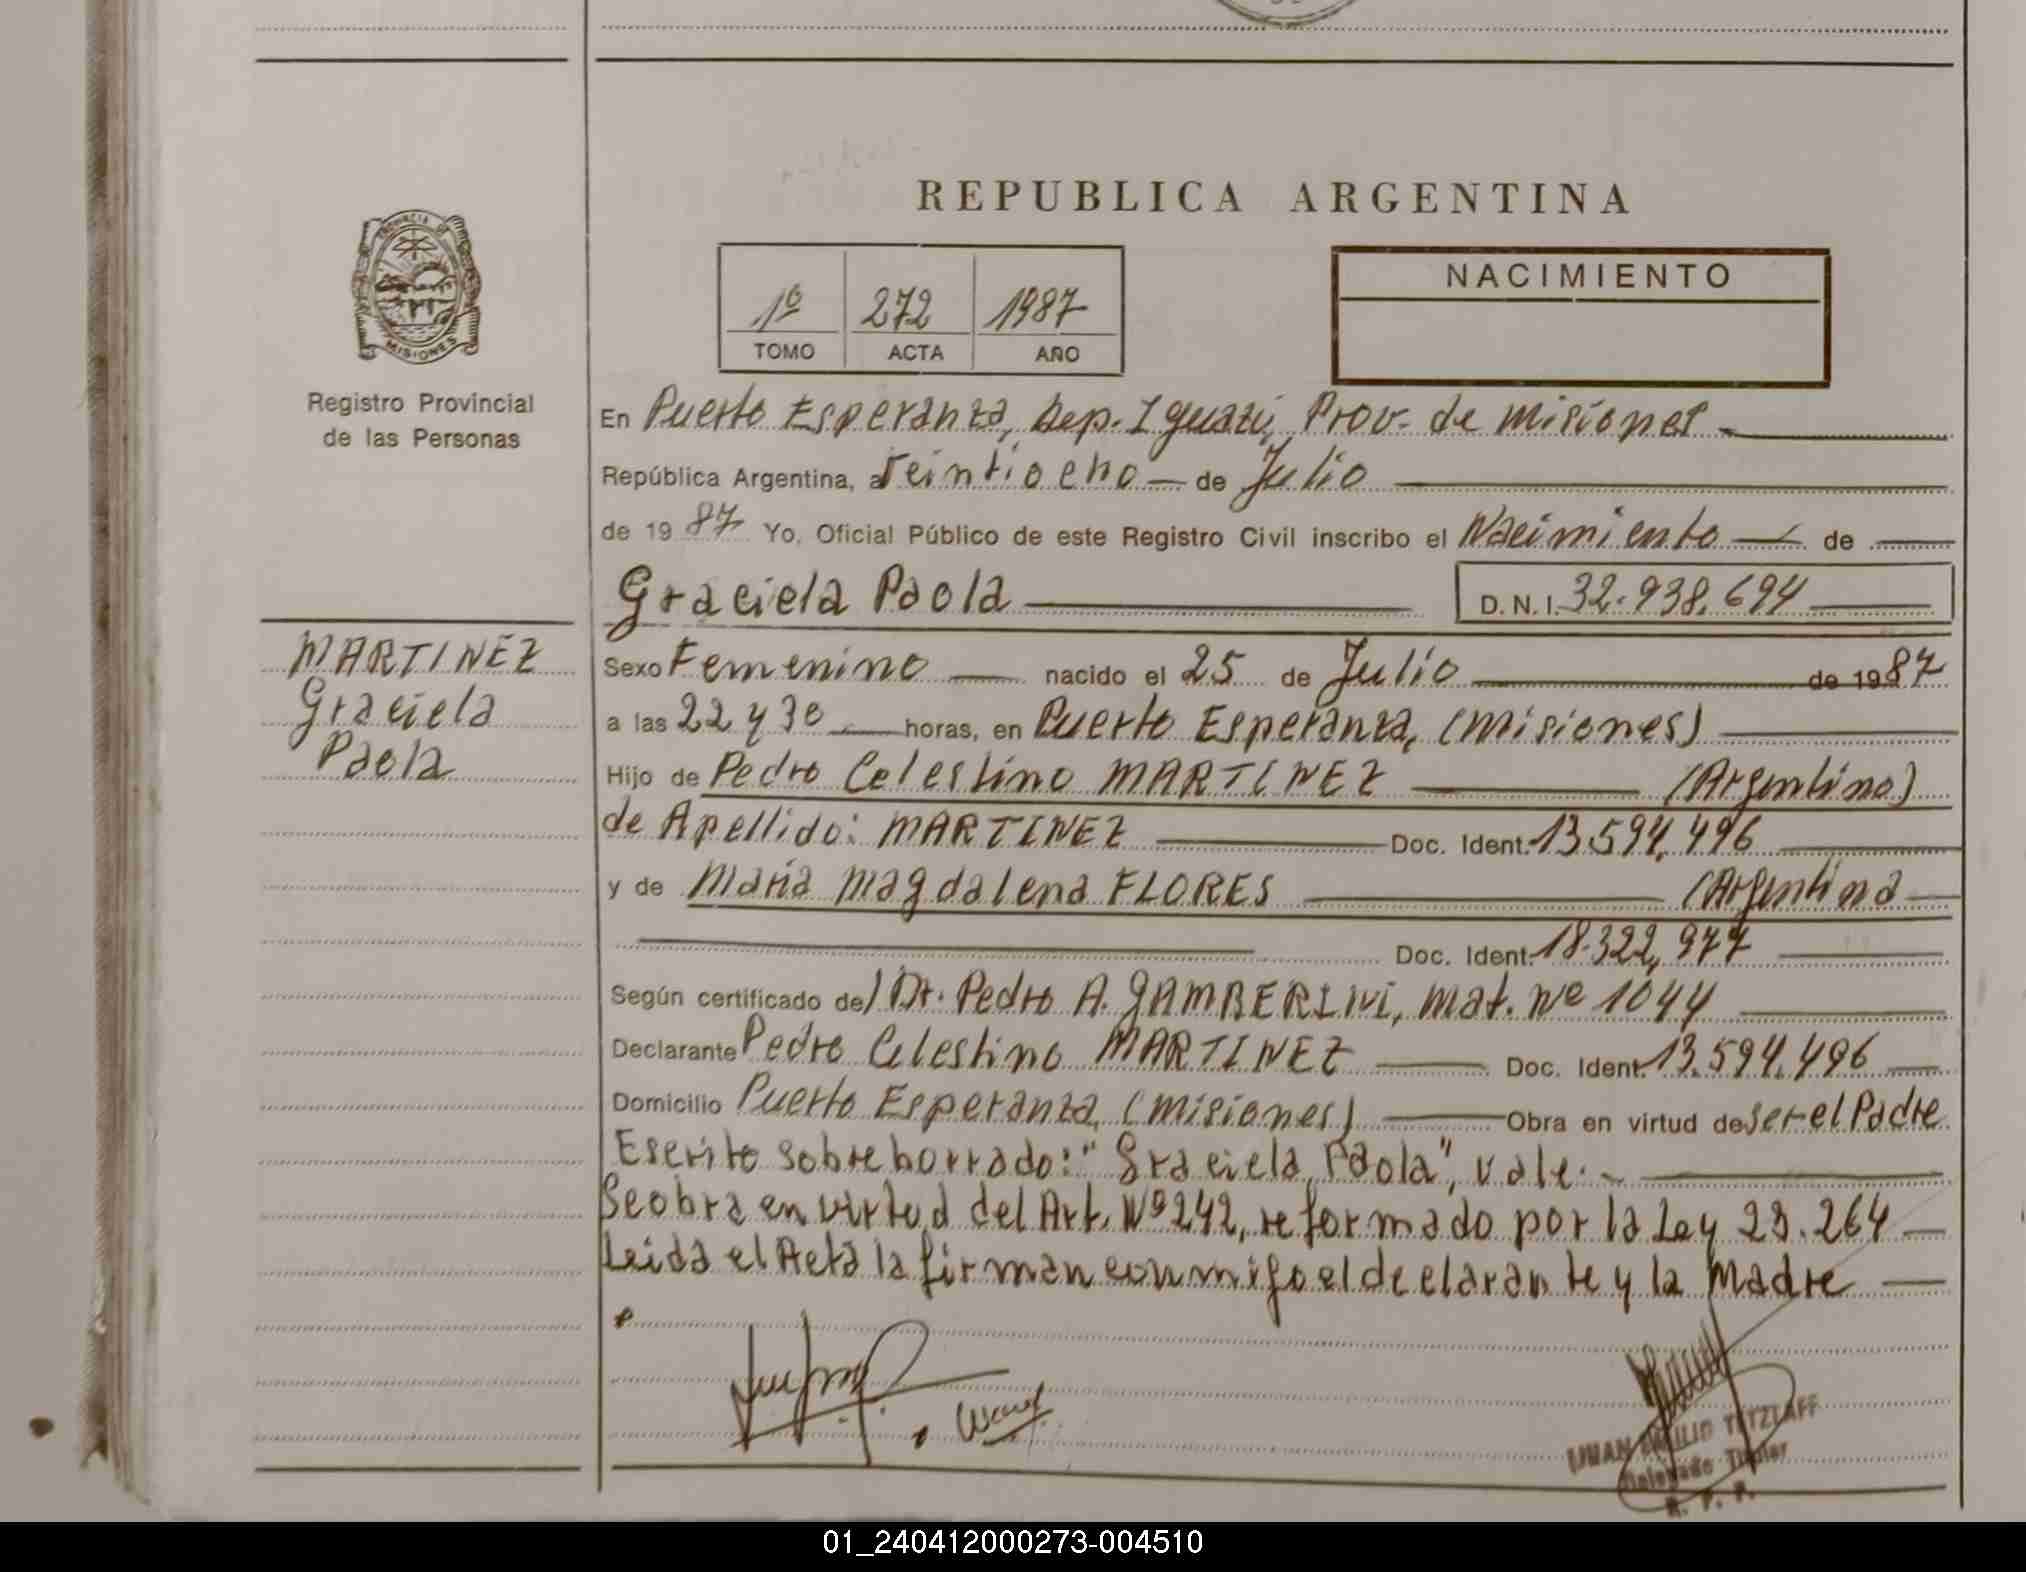 REPUBLICA ARGENTINA
PROVINCIA DE
MISIONES
Registro Provincial
de las Personas
1º 272 1987
TOMO ACTA AÑO
NACIMIENTO
En Puerto Esperanza, Dep. Iguazú, Prov. de Misiones
República Argentina, a Veintiocho de Julio
de 1987 Yo, Oficial Público de este Registro Civil inscribo el Nacimiento de
Graciela Paola D.N.I. 32.938.694
MARTINEZ
Graciela
Paola
Sexo Femenino nacido el 25 de Julio de 1987
a las 22 y 30 horas, en Puerto Esperanza, (Misiones)
Hijo de Pedro Celestino MARTINEZ (Argentino)
de Apellido: MARTINEZ Doc. Ident. 13.594.496
y de Maria Magdalena FLORES (Argentina
Doc. Ident. 18.322.977
Según certificado del Dr. Pedro A. GAMBERINI, Mat. Nº 1044
Declarante Pedro Celestino MARTINEZ Doc. Ident. 13.594.496
Domicilio Puerto Esperanza, (Misiones) Obra en virtud de ser el Padre
Escrito sobre borrado: "Graciela Paola", vale.
Se obra en virtud del Art. Nº 242, reformado por la Ley 23.264
Leida el Acta la firman conmigo el declarante y la Madre
JUAN EMILIO TETZLAFF
Delegado Titular
R. P. P.
01_240412000273-004510